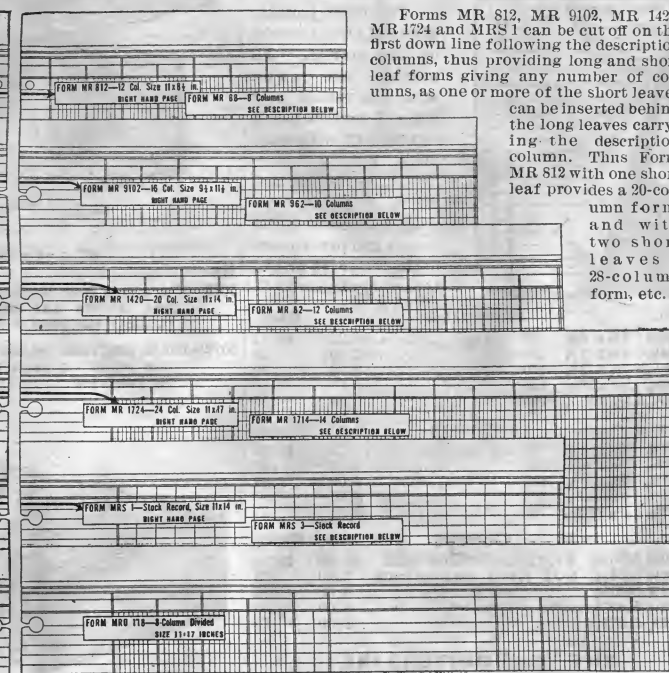 Forms MR 812, MR 9102, MR 142
MR 1724 and MRS 1 can be cut off on th
first down line following the descriptio
columns, thus providing long and shor
leaf forms giving any number of co
umns, as one or more of the short leave
can be inserted behin
the long leaves carry-
ing the descriptio
column. Thus Form
MR 812 with one shor
leaf provides a 20-co
umn form
and wit
two shor
leaves
28-colum
form, etc.
FORM MR 812—12 Col. Size 11x8½ in.
RIGHT HAND PAGE
FORM MR 68—8 Columns
SEE DESCRIPTION BELOW
FORM MR 9102—16 Col. Size 9½x11½ in.
RIGHT HAND PAGE
FORM MR 962—10 Columns
SEE DESCRIPTION BELOW
FORM MR 1420—20 Col. Size 11x14 in.
RIGHT HAND PAGE
FORM MR 82—12 Columns
SEE DESCRIPTION BELOW
FORM MR 1724—24 Col. Size 11x17 in.
RIGHT HAND PAGE
FORM MR 1714—14 Columns
SEE DESCRIPTION BELOW
FORM MRS 1—Stock Record, Size 11x14 in.
RIGHT HAND PAGE
FORM MRS 3—Stock Record
SEE DESCRIPTION BELOW
FORM 8-Column Divided
SIZE 11x17 INCHES